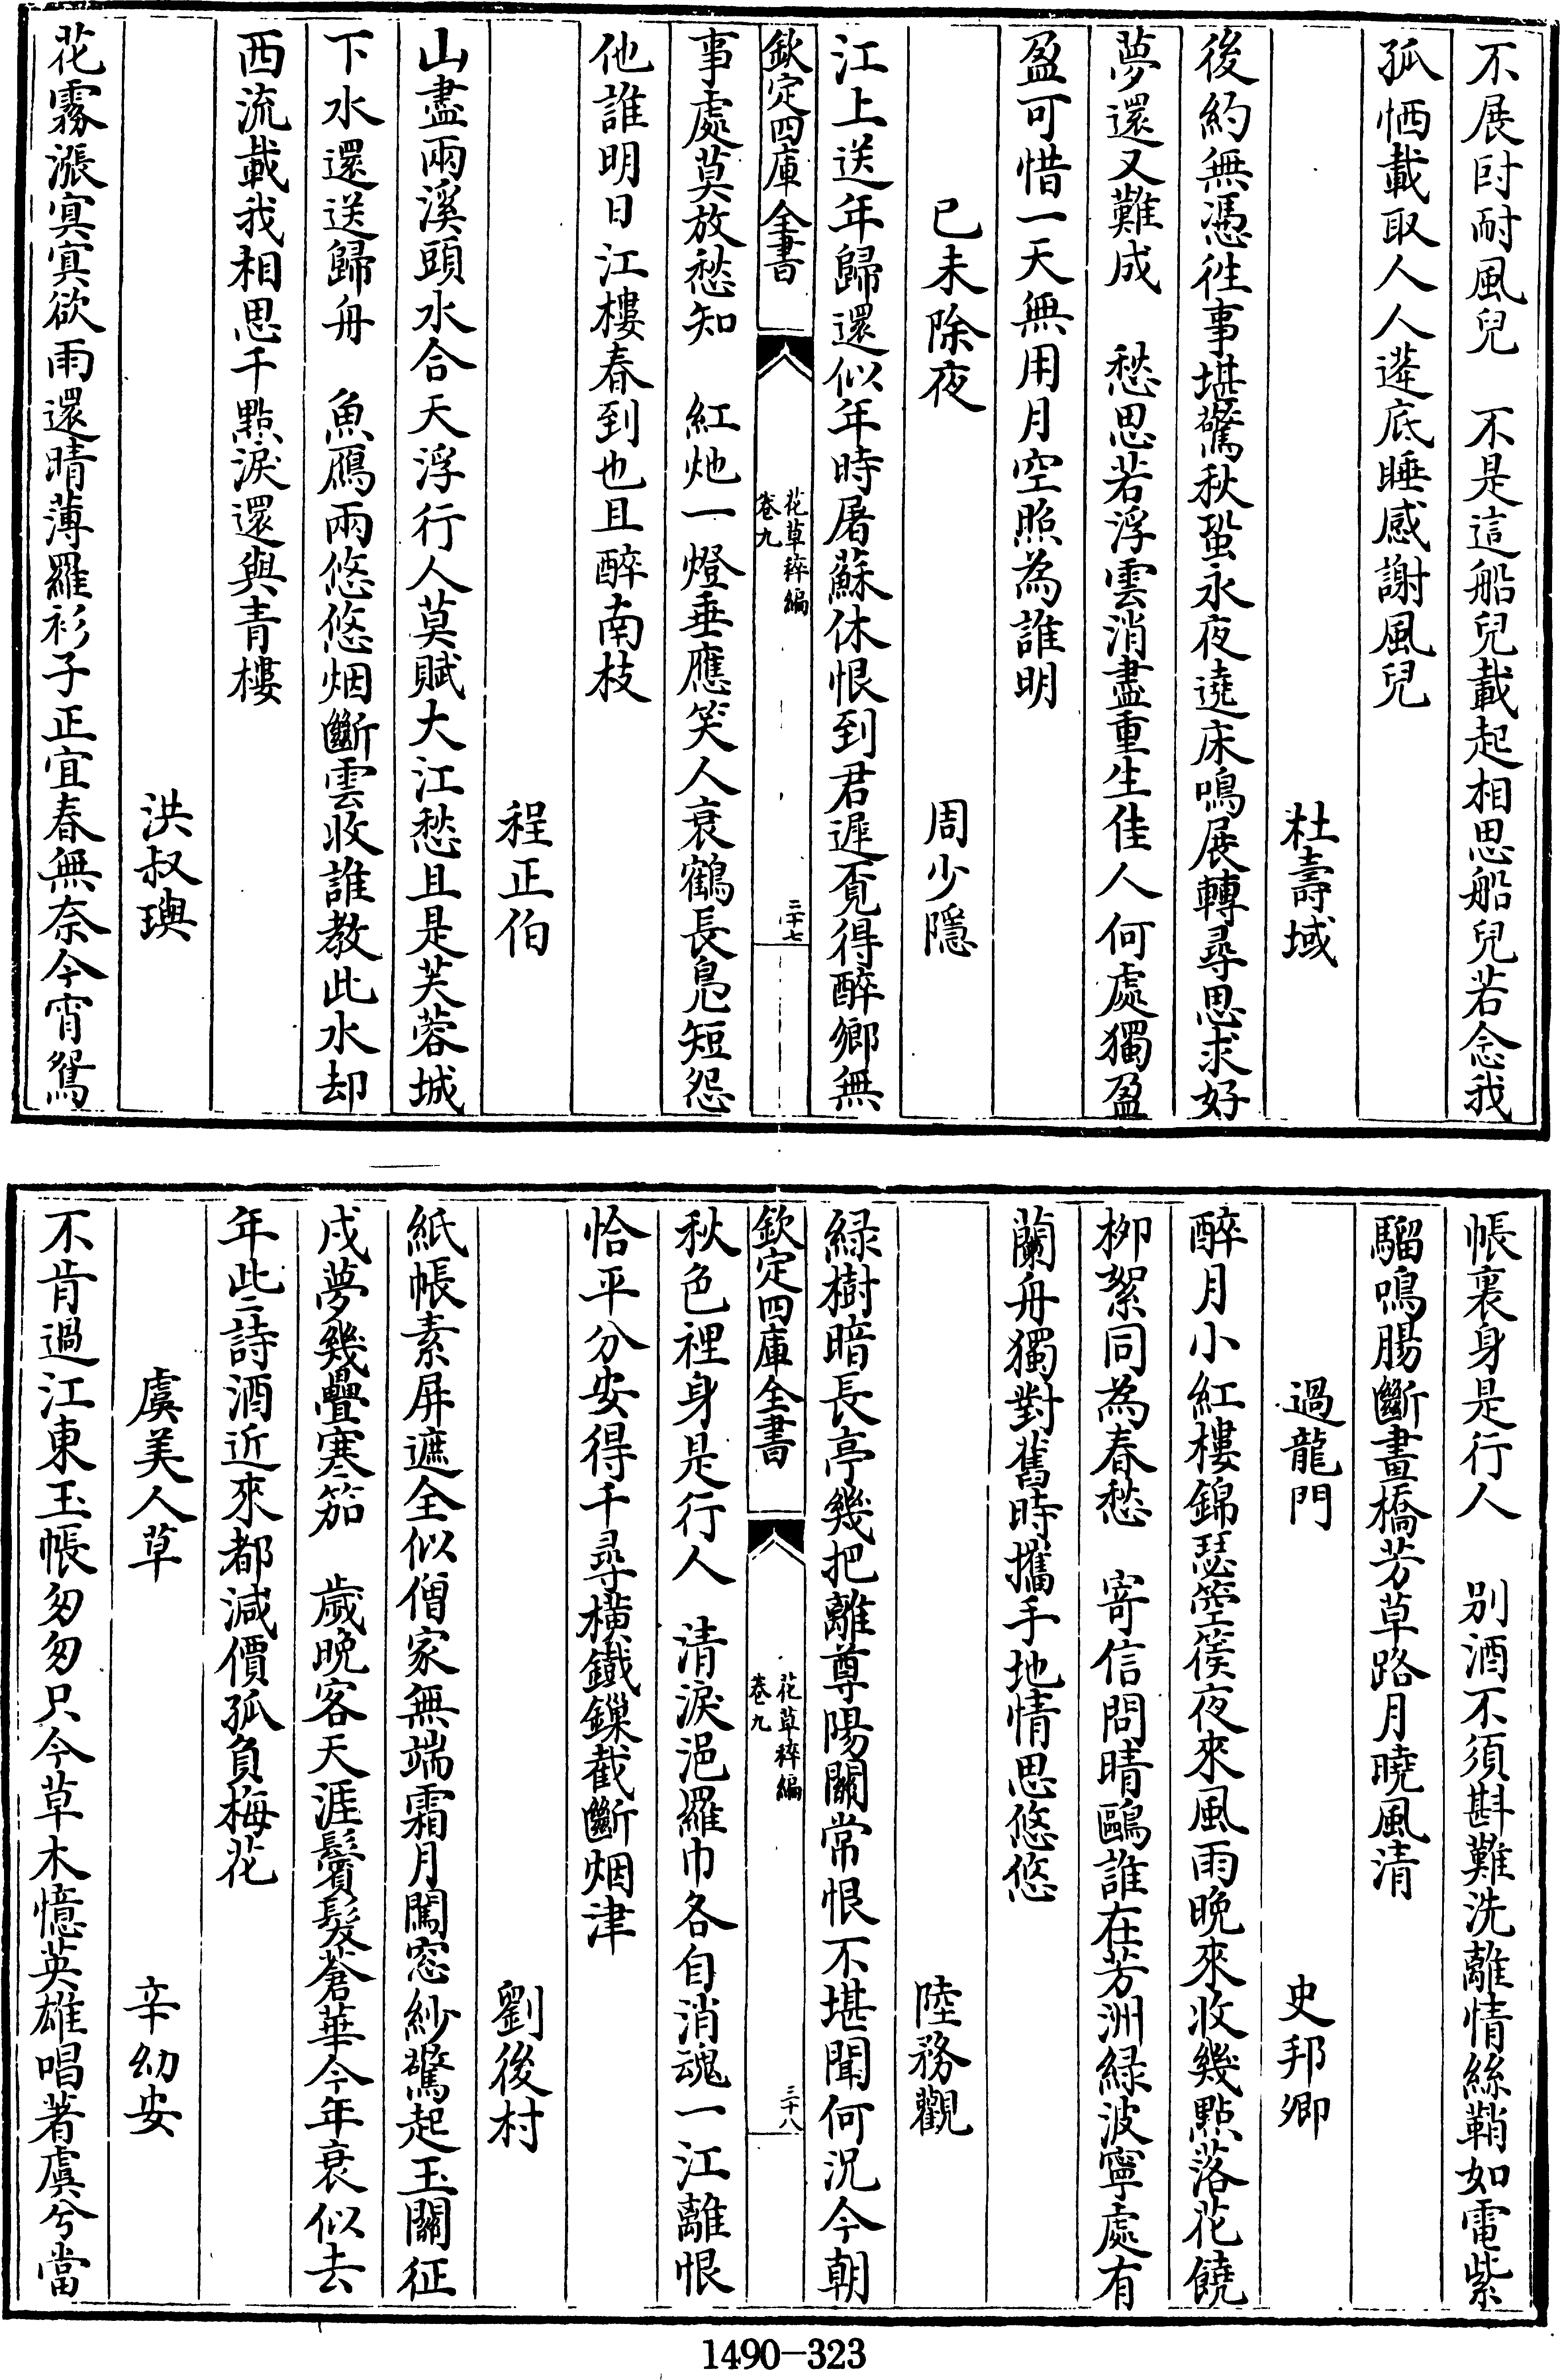 不展尀耐風兒　不是這船兒載起相思船兒若念我
孤恓載取人人蓬底睡感謝風兒
杜壽域
後約無憑徃事堪驚秋蛩永夜遶床鳴展轉尋思求好
夢還又難成　愁思若浮雲消盡重生佳人何處獨盈
盈可惜一天無用月空照為誰明
己未除夜　周少隱
江上送年歸還似年時屠蘇休恨到君遲覔得醉鄉無
欽定四庫全書　花草稡編卷九　二十七
事處莫放愁知　紅灺一燈垂應笑人衰鶴長鳬短怨
他誰明日江樓春到也且醉南枝
程正伯
山盡兩溪頭水合天浮行人莫賦大江愁且是芙蓉城
下水還送歸舟　魚鴈兩悠悠烟斷雲收誰教此水却
西流載我相思千點淚還與青樓
洪叔璵
花霧漲冥冥欲雨還晴薄羅衫子正宜春無奈今宵鴛
帳裏身是行人　别酒不須斟難洗離情絲鞘如電紫
騮鳴腸斷畫橋芳草路月曉風清
過龍門　史邦卿
醉月小紅樓錦瑟箜篌夜來風雨晚來收幾點落花饒
柳絮同為春愁　寄信問晴鷗誰在芳洲緑波寧處有
蘭舟獨對舊時攜手地情思悠悠
陸務觀
緑樹暗長亭幾把離尊陽關常恨不堪聞何況今朝
欽定四庫全書　花草稡編卷九　二十八
秋色裡身是行人　清淚浥羅巾各自消魂一江離恨
恰平分安得千尋橫鐵鏁截斷烟津
劉後村
紙帳素屏遮全似僧家無端霜月闖窓紗驚起玉關征
戍夢幾疊寒笳　歲晚客天涯鬢髮蒼華今年衰似去
年些詩酒近來都減價孤負梅花
虞美人草　辛幼安
不肯過江東玉帳匆匆只今草木憶英雄唱著虞兮當
1490-323